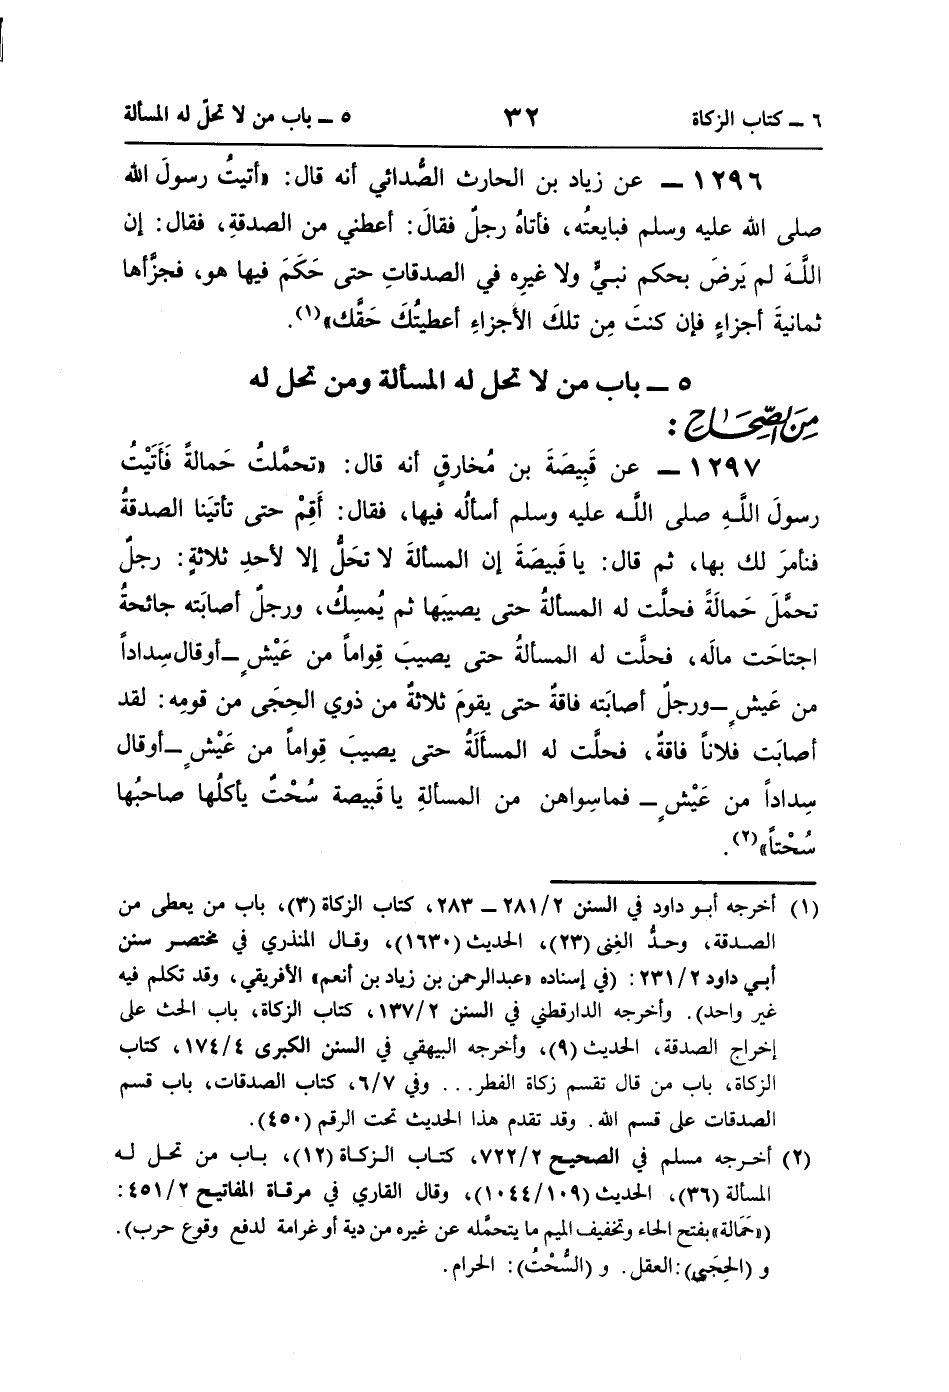 ٦ ــ كتاب الزكاة ٣٢ ٥ ــ باب من لا تحلّ له المسألة
١٢٩٦ ــ عن زياد بن الحارث الصُّدائي أنه قال: «أتيتُ رسولَ الله
صلى الله عليه وسلم فبايعتُه، فأتاهُ رجلٌ فقالَ: أعطني من الصدقةِ، فقال: إن
اللَّهَ لم يَرضَ بحكم نبيٍّ ولا غيرِه في الصدقاتِ حتى حَكَمَ فيها هو، فجزَّأها
ثمانيةَ أجزاءٍ فإن كنتَ مِن تلكَ الأجزاءِ أعطيتُكَ حَقَّك»(١).
٥ ــ باب من لا تحل له المسألة ومن تحل له
مِنَ الصِّحَاح:
١٢٩٧ ــ عن قَبِيصَةَ بن مُخارقٍ أنه قال: «تحمَّلتُ حَمالةً فَأَتَيْتُ
رسولَ اللَّهِ صلى اللَّه عليه وسلم أسألُه فيها، فقال: أَقِمْ حتى تأتيَنا الصدقةُ
فنأمرَ لك بها، ثم قال: يا قَبيصَةَ إن المسألةَ لا تحَلُّ إلا لأحدِ ثلاثةٍ: رجلٌ
تحمَّلَ حَمالَةً فحلَّت له المسألةُ حتى يصيبَها ثم يُمسِكُ، ورجلٌ أصابَته جائحةُ
اجتاحَت مالَه، فحلَّت له المسألةُ حتى يصيبَ قِواماً من عَيْشٍ ــ أو قال سِداداً
من عَيشٍ ــ ورجلٌ أصابَته فاقةٌ حتى يقومَ ثلاثةٌ من ذوي الحِجَى من قومِه: لقد
أصابَت فلاناً فاقةٌ، فحلَّت له المسأَلَةُ حتى يصيبَ قِواماً من عَيْشٍ ــ أو قال
سِداداً من عَيْشٍ ــ فما سِواهن من المسألةِ يا قَبيصة سُحْتٌ يأكلُها صاحبُها
سُحْتاً»(٢).
(١) أخرجه أبو داود في السنن ٢/٢٨١ ــ ٢٨٣، كتاب الزكاة (٣)، باب من يعطى من
الصدقة، وحدُّ الغِنى (٢٣)، الحديث (١٦٣٠)، وقال المنذري في مختصر سنن
أبي داود ٢/٢٣١: (في إسناده «عبدالرحمن بن زياد بن أنعم» الأفريقي، وقد تكلم فيه
غير واحد). وأخرجه الدارقطني في السنن ٢/١٣٧، كتاب الزكاة، باب الحث على
إخراج الصدقة، الحديث (٩)، وأخرجه البيهقي في السنن الكبرى ٤/١٧٤، كتاب
الزكاة، باب من قال تقسم زكاة الفطر... وفي ٧/٦، كتاب الصدقات، باب قسم
الصدقات على قسم الله. وقد تقدم هذا الحديث تحت الرقم (٤٥٠).
(٢) أخرجه مسلم في الصحيح ٢/٧٢٢، كتاب الزكاة (١٢)، باب من تحل له
المسألة (٣٦)، الحديث (١٠٤٤/١٠٩)، وقال القاري في مرقاة المفاتيح ٢/٤٥١:
(«حَمَالة» بفتح الحاء وتخفيف الميم ما يتحمَّله عن غيره من دية أو غرامة لدفع وقوع حرب).
و (الحِجَى): العقل. و (السُّحْتُ): الحرام.